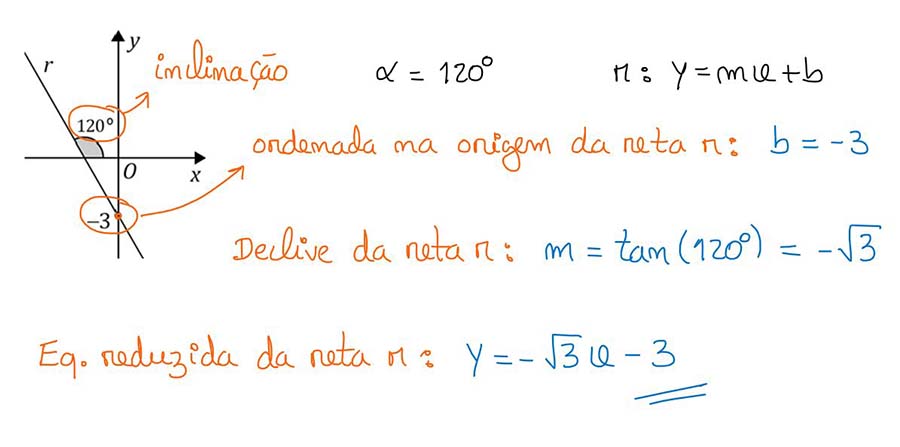 y
r
inclinação
α = 120°
r: y = mx + b
120°
ordenada na origem da reta r: b = -3
O
x
–3
Declive da reta r: m = tan(120°) = -√3
Eq. reduzida da reta r: y = -√3x - 3